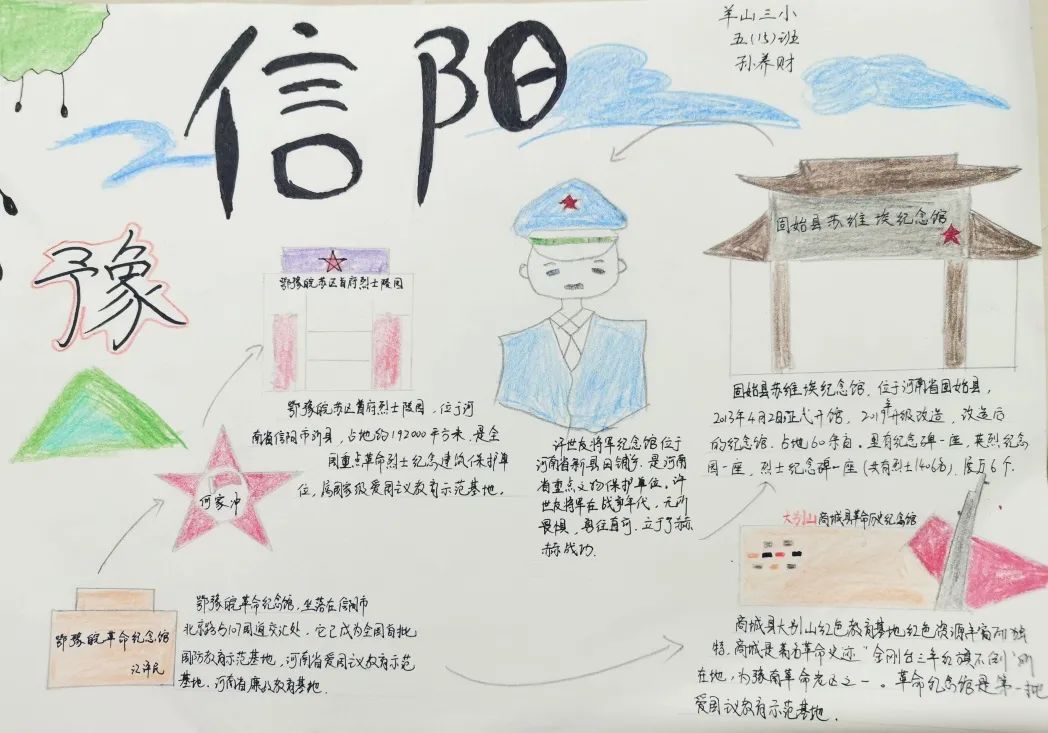 信阳
羊山三小
五(15)班
孙养财
豫
鄂豫皖苏区首府烈士陵园
鄂豫皖苏区首府烈士陵园,位于河
南省信阳市新县,占地约192000平方米,是全
国重点革命烈士纪念建筑保护单
位,属国家级爱国义教育示范基地.
何家冲
鄂豫皖革命纪念馆
江泽民
鄂豫皖革命纪念馆,坐落在信阳市
北京路与107国道交汇处,它已成为全国首批
国防教育示范基地,河南省爱国义教育示范
基地、河南省廉政教育基地.
许世友将军纪念馆位于
河南省新县田铺乡,是河南
省重点文物保护单位。许
世友将军在战争年代,无所
畏惧,勇往直前,立下了赫
赫战功.
固始县苏维埃纪念馆
固始县苏维埃纪念馆,位于河南省固始县,
2013年4月2日正式开馆,2019年升级改造,改造后
的纪念馆,占地60余亩。里有纪念碑一座,英烈纪念
园一座,烈士纪念碑一座(共有烈士1406名),展厅6个.
大别山商城县革命历史纪念馆
商城县大别山红色教育基地红色资源丰富而独
特,商城是著名革命史迹"金刚台三年红旗不倒"所
在地,为豫南革命老区之一。革命纪念馆是第一批
爱国义教育示范基地.